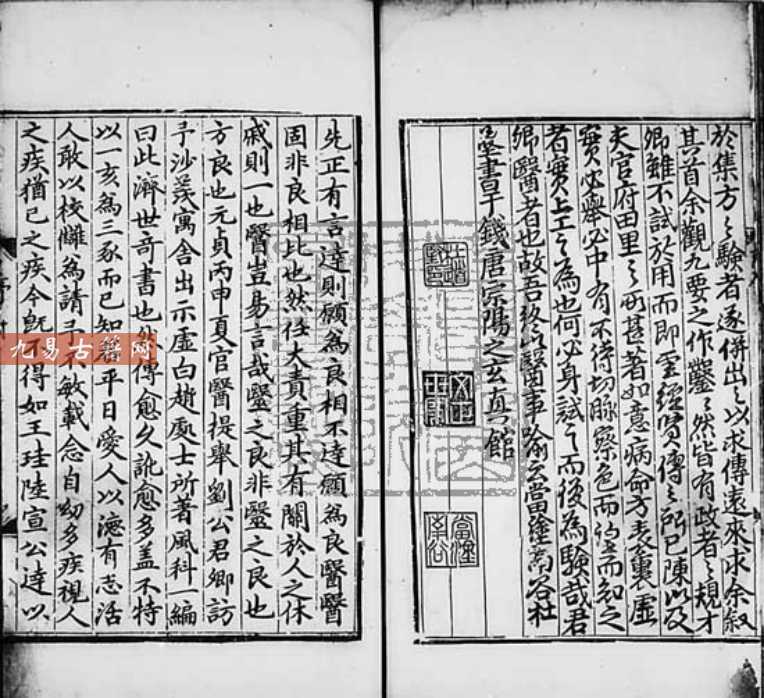 於集方之驗者遂併出之以求傳遠來求余叙
其首余觀九要之作鑿鑿然皆有政者之規才
卿雖不試於用而即靈經賢傳之所已陳以及
天官府田里之甚著如意病命方表裏虛
實必舉必中有不待切脉察色而望而知之
者實上工之為也何必身試之而後為驗哉君
卿醫者也故吾終以醫事喻云當塗南谷杜
書于錢唐宗陽之玄真館
當塗南谷
先正有言達則願為良相不達願為良醫醫
固非良相比也然任大責重其有關於人之休
戚則一也醫豈易言哉醫之良非醫之良也
方良也元貞丙申夏官醫提舉劉公君卿訪
予沙羨寓舍出示虛白趙處士所著風科一編
曰此濟世奇書也然傳愈久訛愈多盖不特
以一亥為三豕而已知君平日愛人以有志活
人敢以校讎為請予不敏載念自幼多疾視人
之疾猶己之疾今既不得如王珪陸宣公達以
九易古籍网